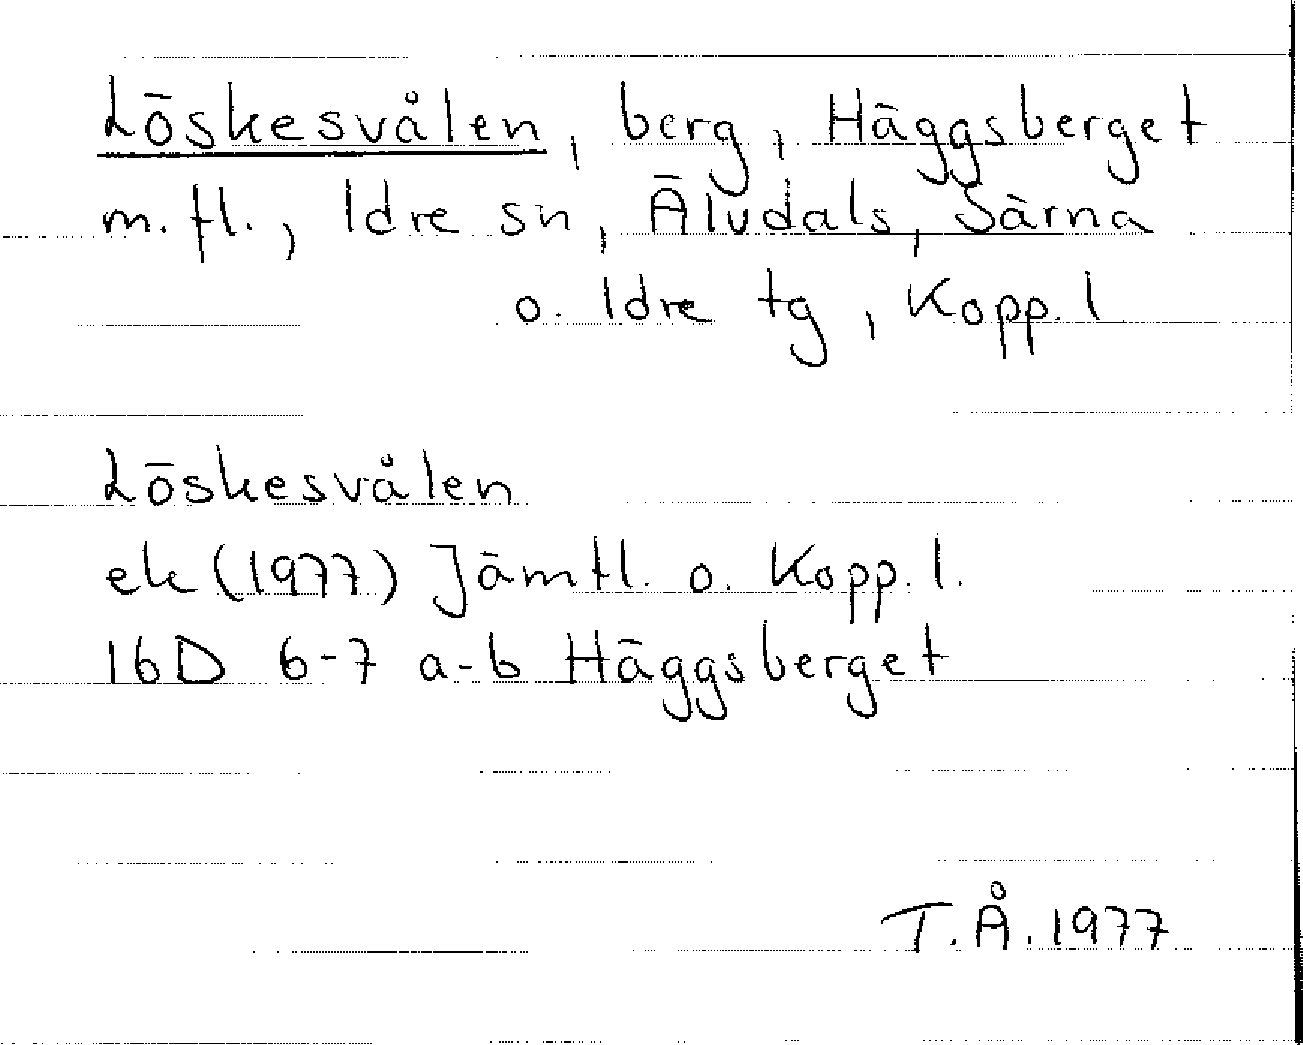 Löskesvålen, berg, Häggsberget
m. fl., Idre sn, Älvdals, Särna
o. Idre tg, Kopp. l
Löskesvålen
ek (1977) Jämtl. o. Kopp. l.
16D 6-7 a-b Häggsberget
T.Å. 1977